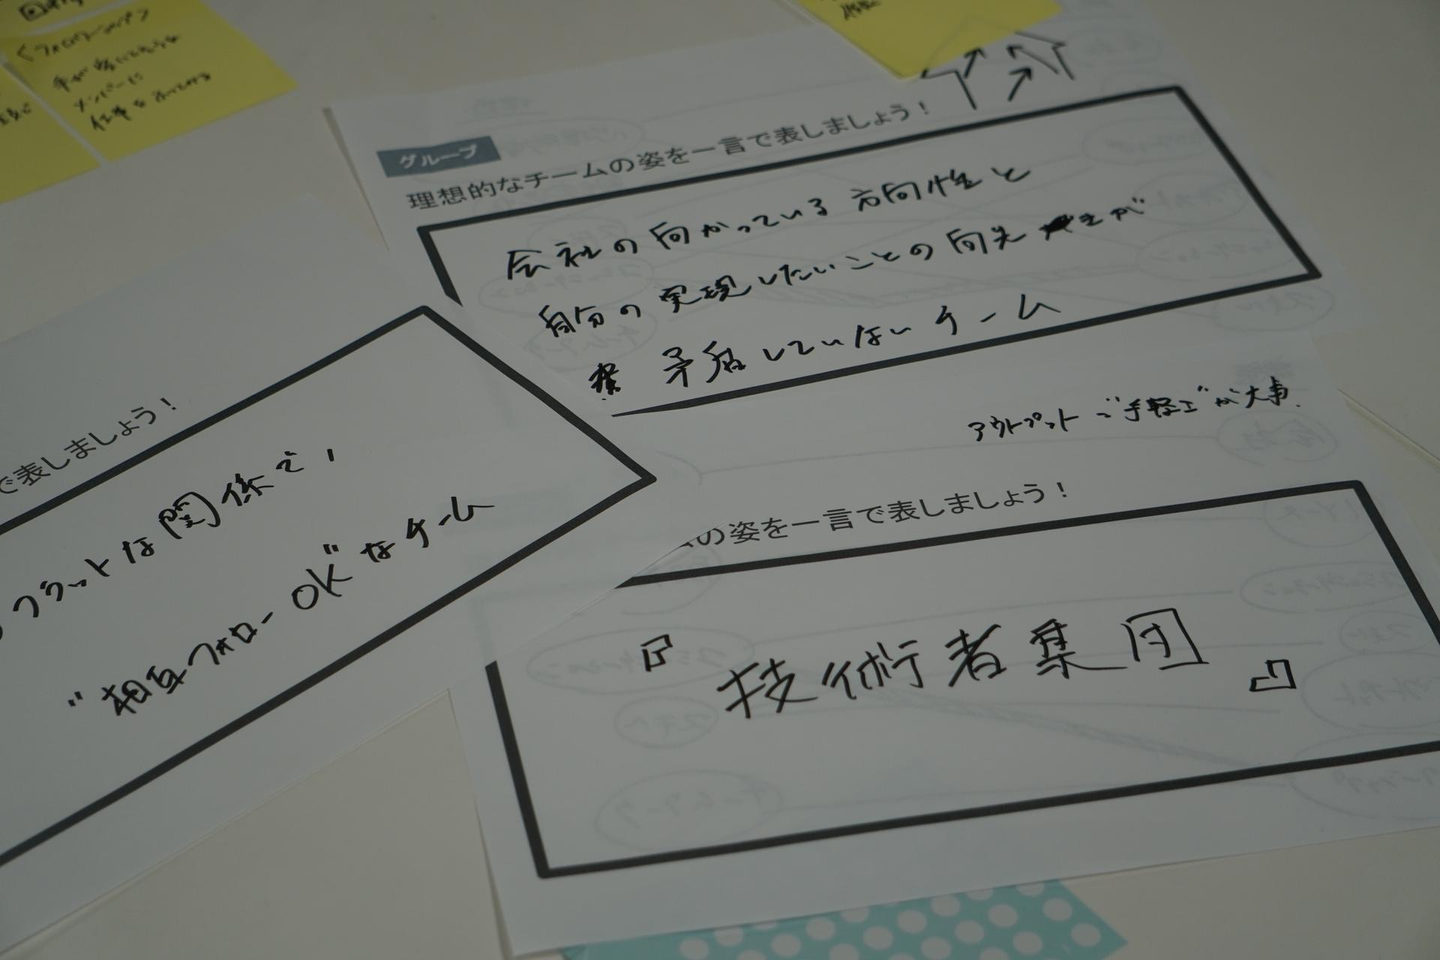 手が空いてそうな
メンバーに
グループ
理想的なチームの姿を一言で表しましょう！
会社の向かっている方向性と
自分の実現したいことの向先が
矛盾していないチーム
アウトプット
が大事.
で表しましょう！
フラットな関係で、
"相互フォローOK"なチーム
の姿を一言で表しましょう！
『技術者集団』